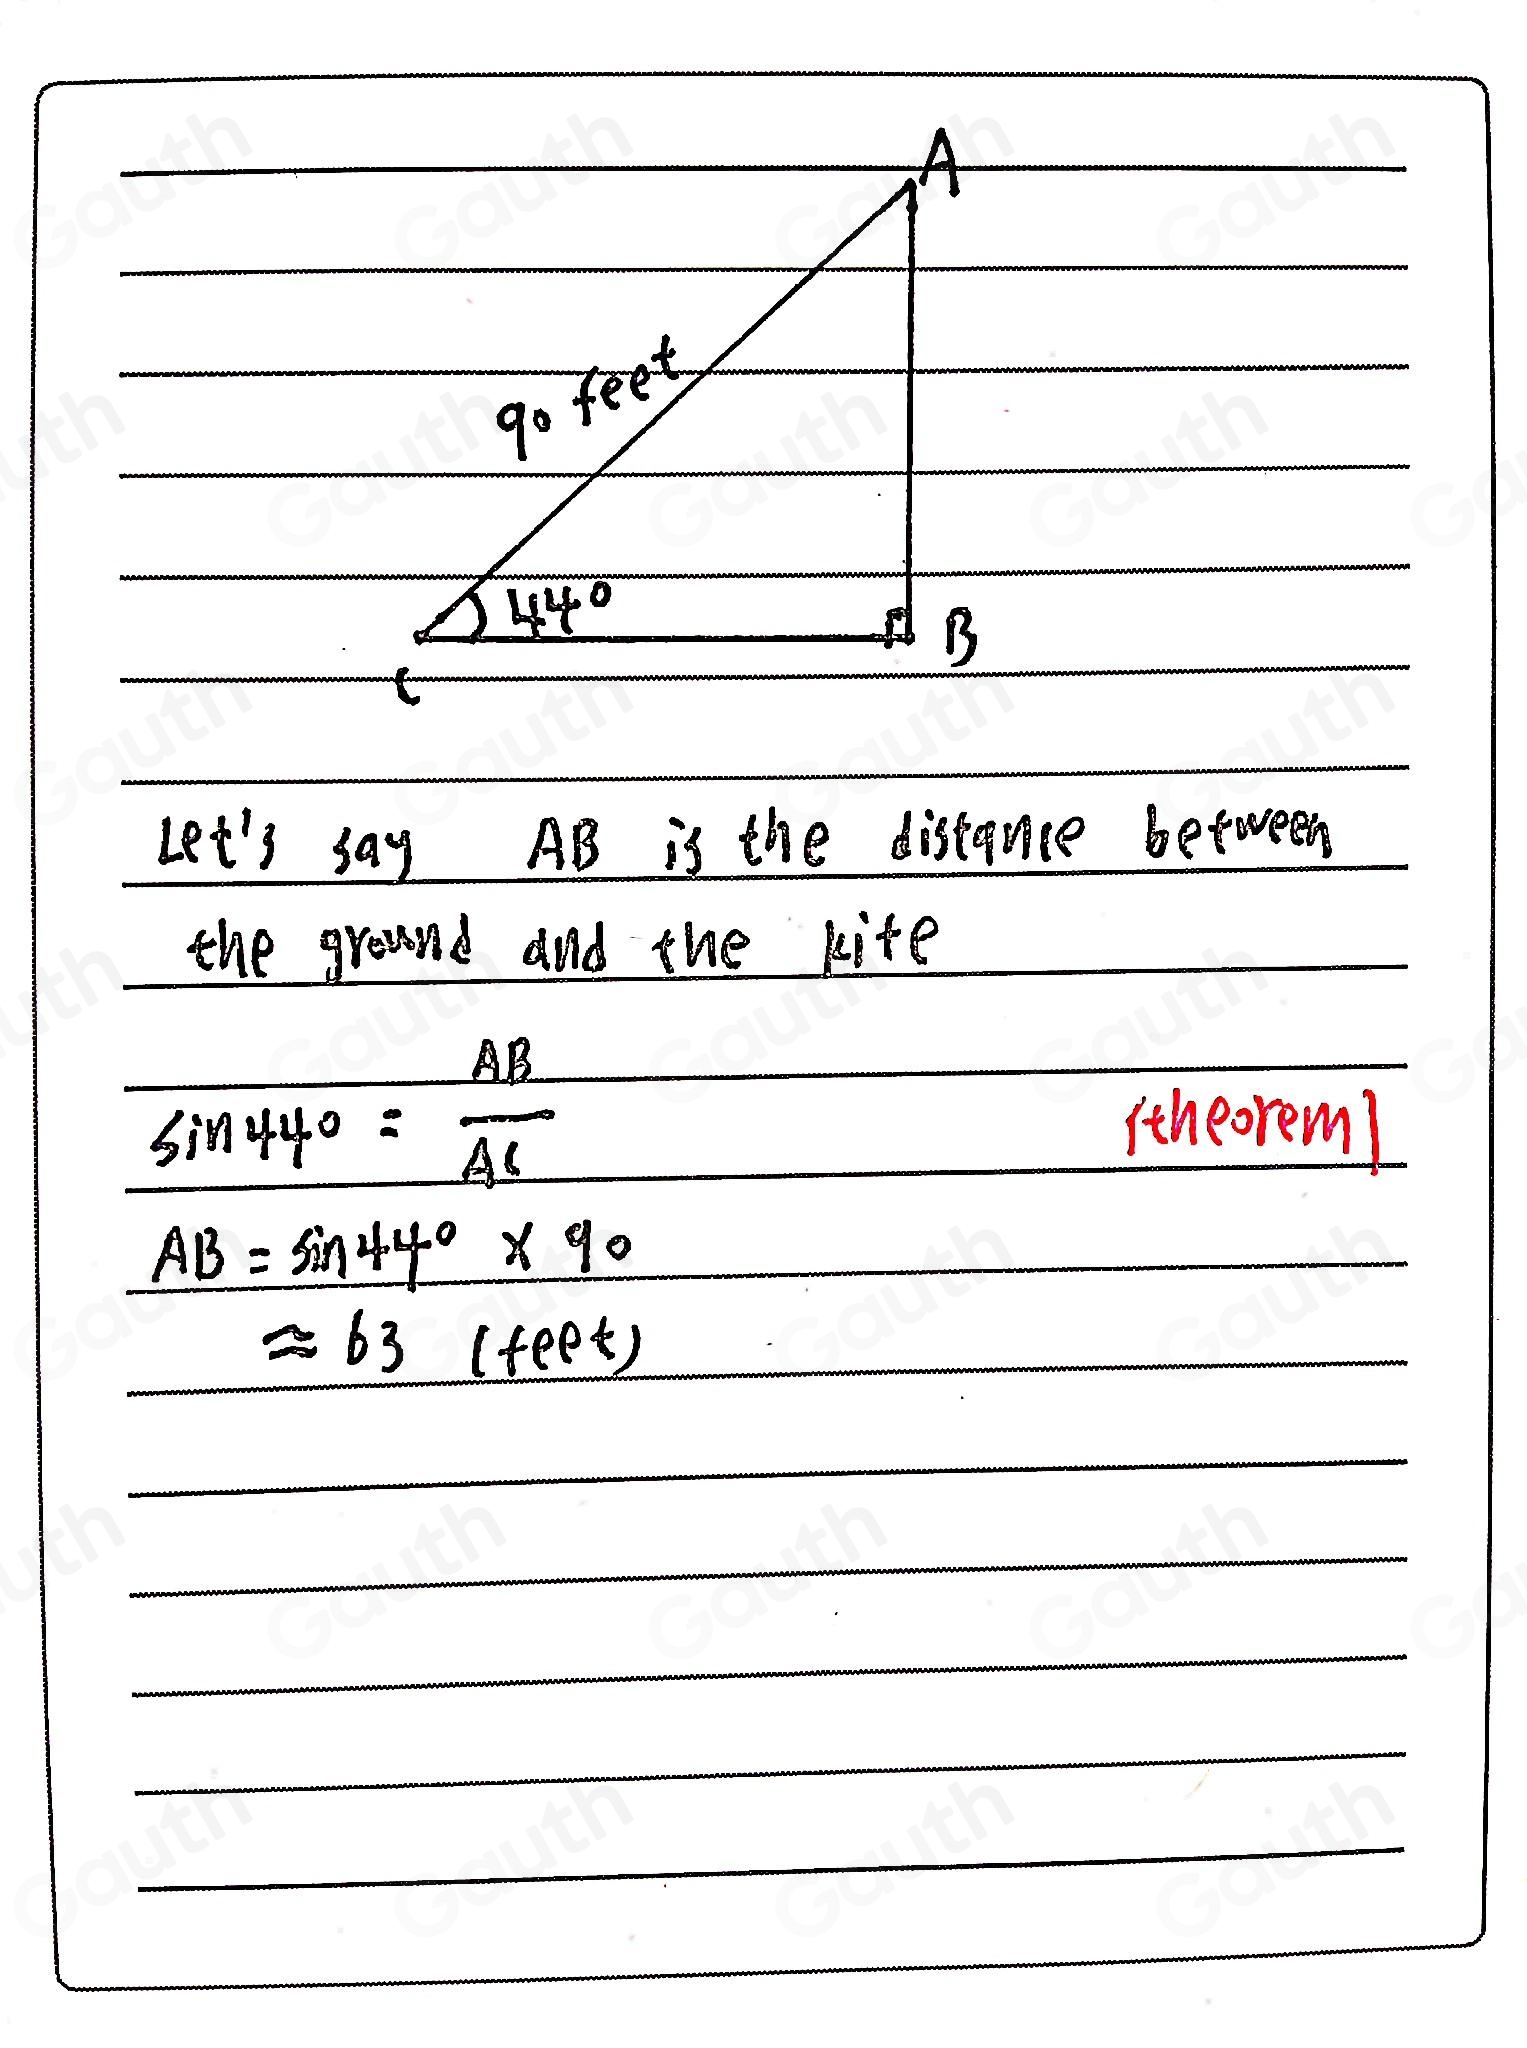 A
90 feet
44°
B
C
Let's say AB is the distance between
the ground and the kite
sin44° = AB/AC
(theorem)
AB = sin44° × 90
≈ 63 (feet)
Gauth